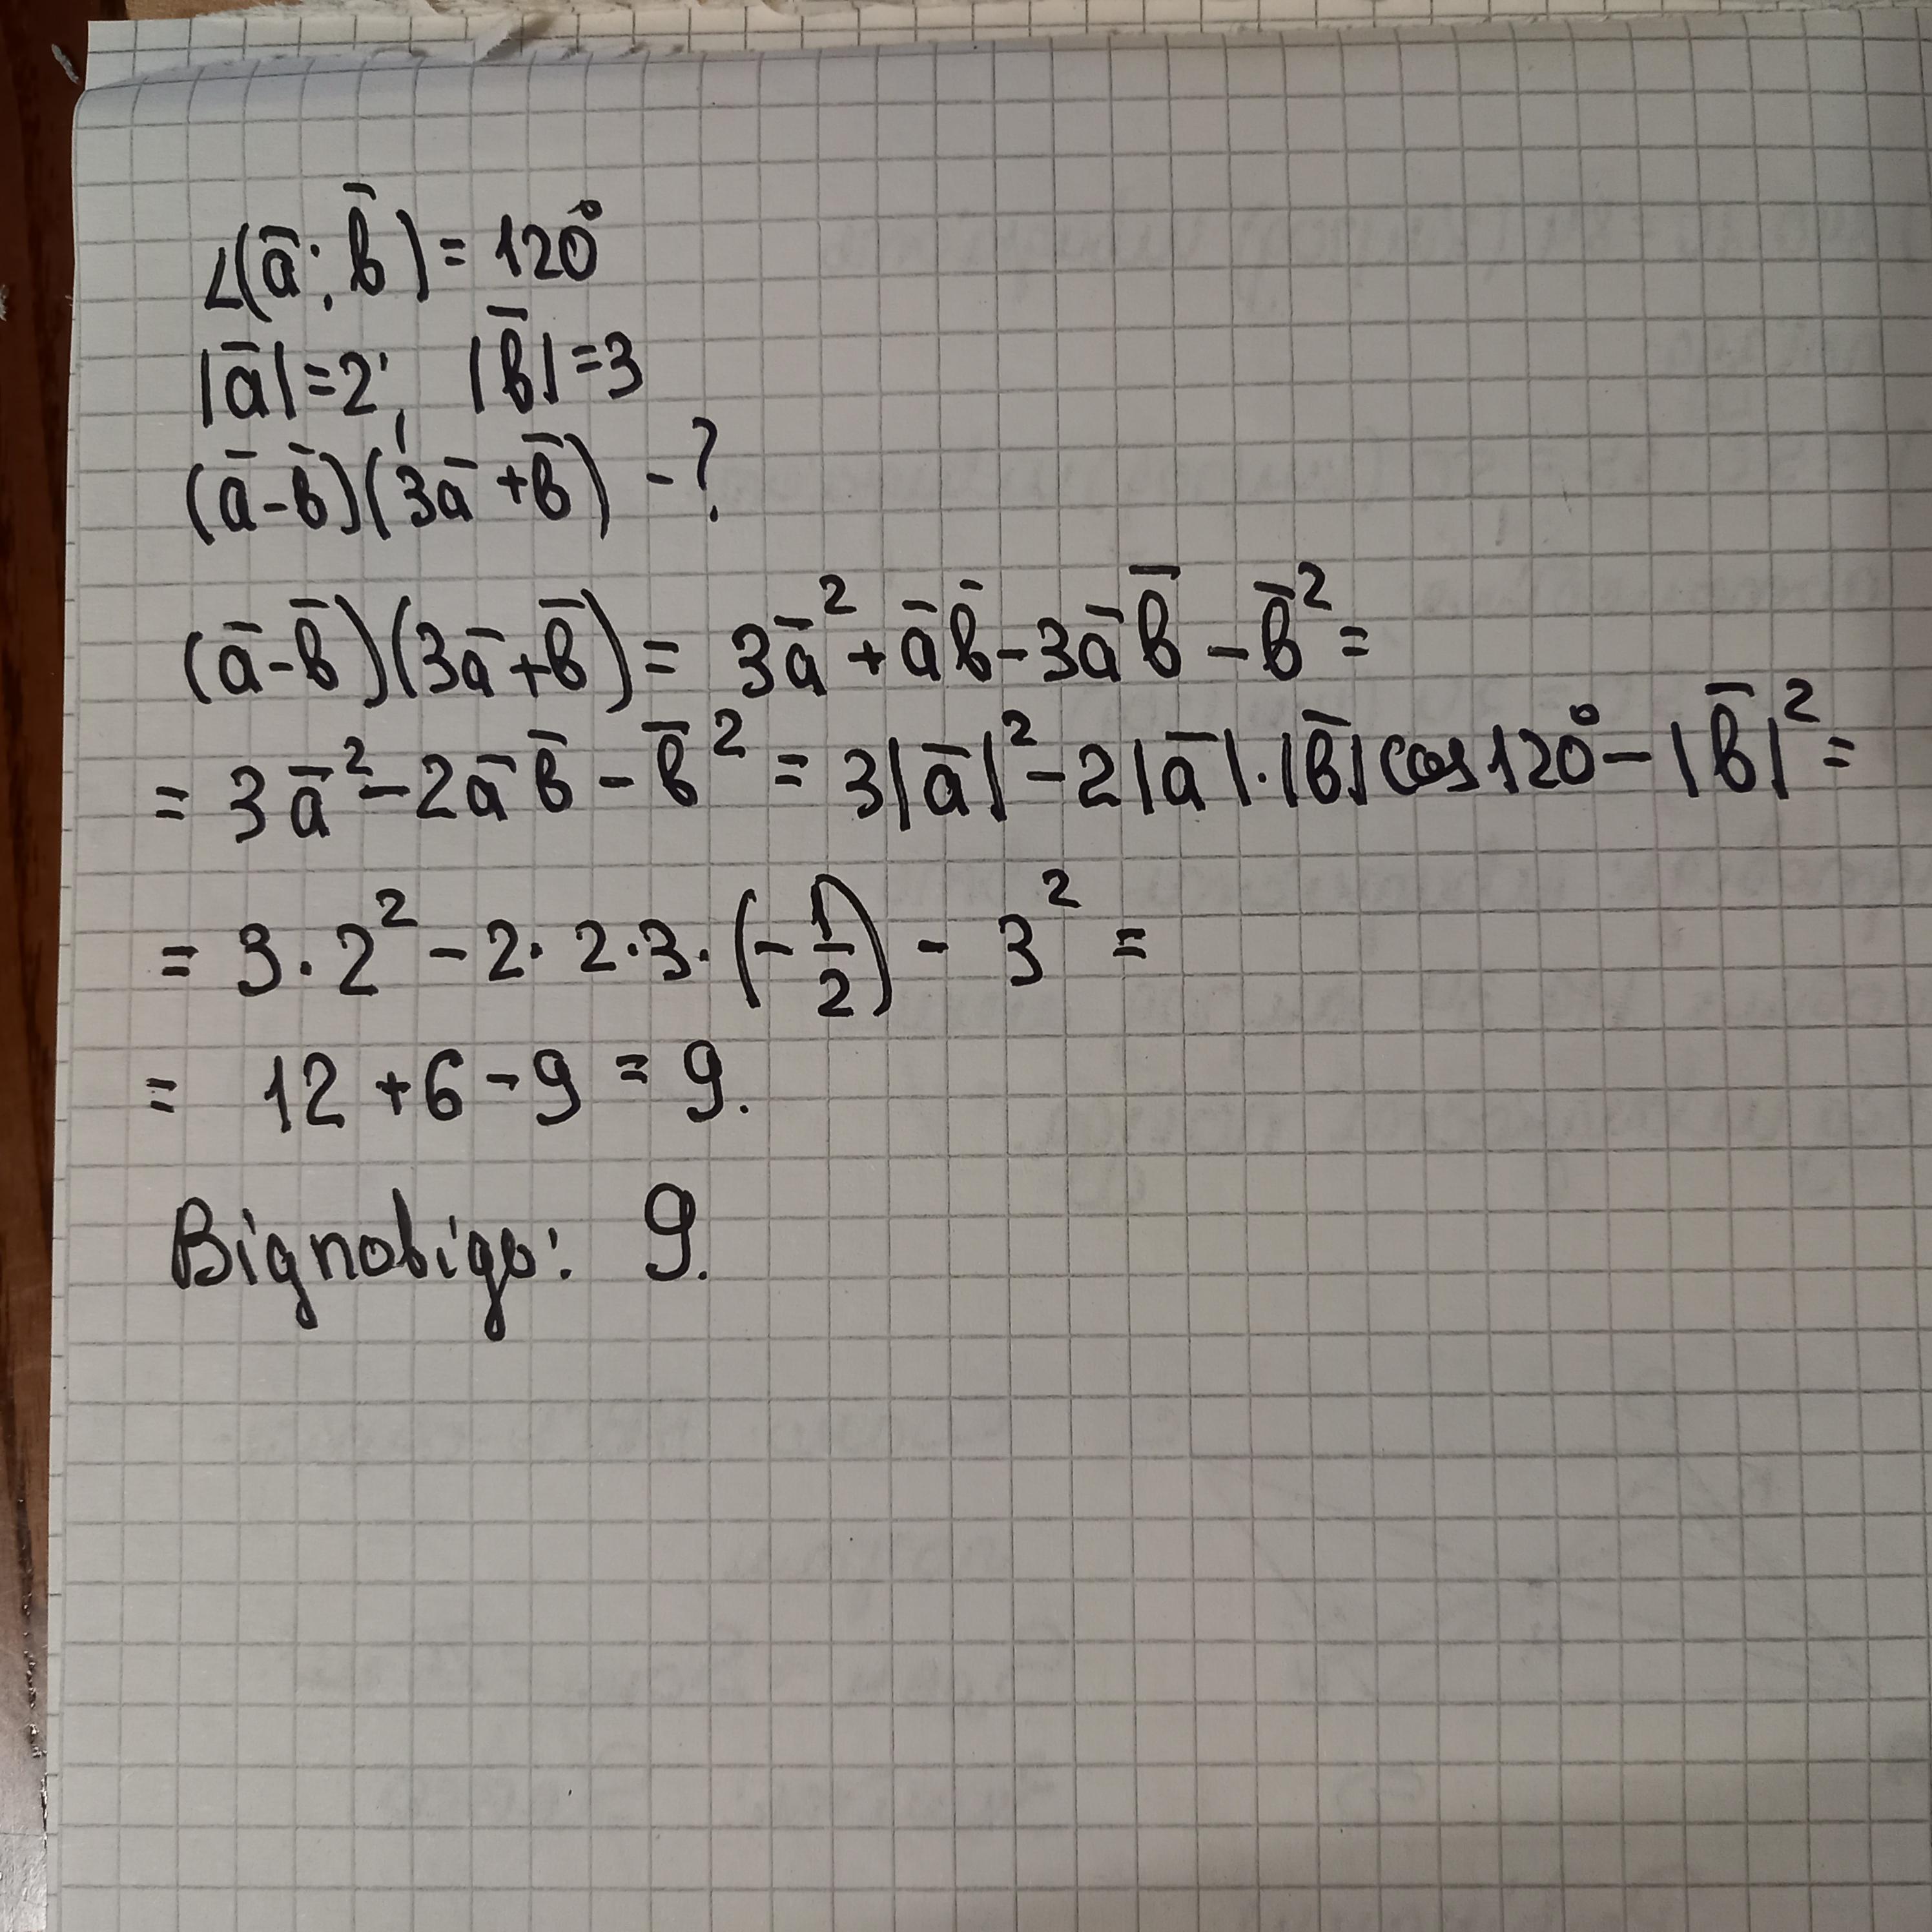 ∠(a̅; b̅) = 120°
|a̅| = 2; |b̅| = 3
(a̅ - b̅)(3a̅ + b̅) - ?
(a̅ - b̅)(3a̅ + b̅) = 3a̅² + a̅b̅ - 3a̅b̅ - b̅² =
= 3a̅² - 2a̅b̅ - b̅² = 3|a̅|² - 2|a̅|·|b̅| cos 120° - |b̅|² =
= 3·2² - 2·2·3·(-1/2) - 3² =
= 12 + 6 - 9 = 9.
Відповідь: 9.